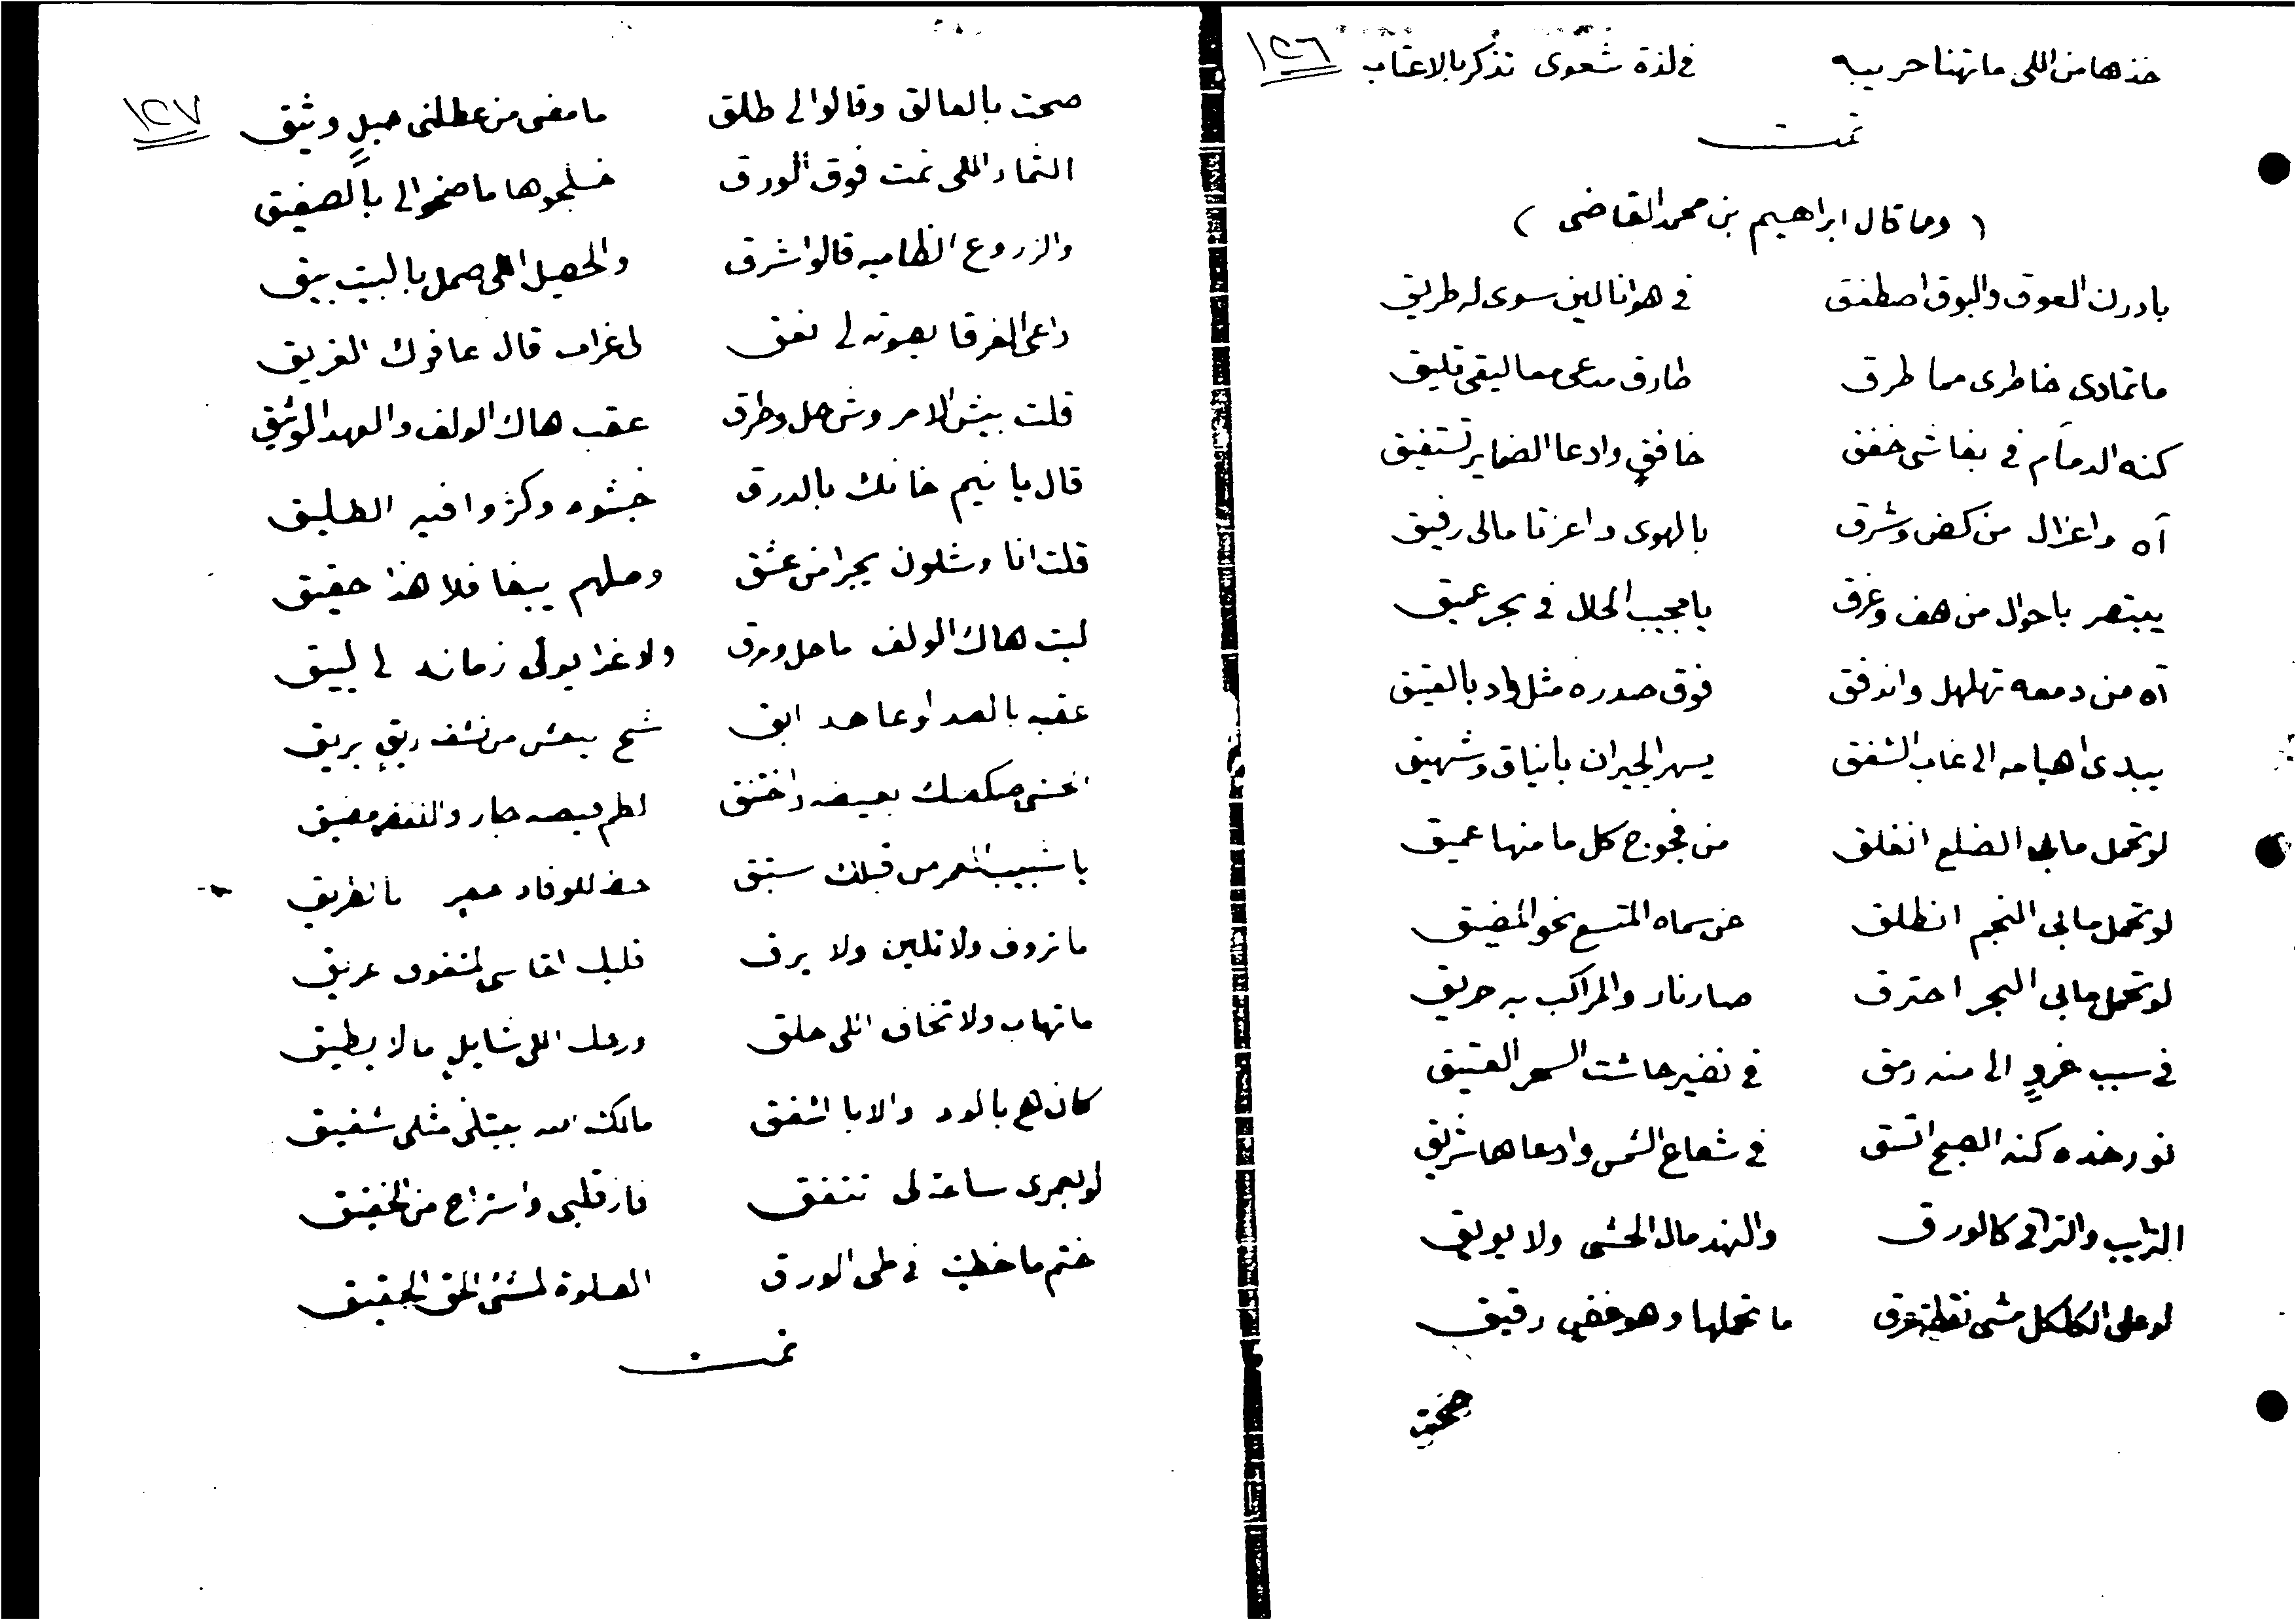 ١٢٦
خذها من اللي ما تهنا حريبه في لذة شعوى تذكر بالاعتاب
تمت
( ومما قال ابراهيم بن محمد القاضي )
بادرن العوق والبوق اصطفق في هوانا لين سوى له طريق
ما تمادى خاطري مما طرق طارق مدعي معاليقي تليق
كنه الدمام في بغاشي خفق خافقٍ وادعا الضماير تستفيق
آه واعزال من كض وشرق بالهوى واعزتا مالي رفيق
يبتصر باحوال من هف وغرق يا مجيب الحال في بحر عميق
آه من دمعه تهلهل واندفق فوق صدره مثل واد بالعقيق
يبدي اهيامه الى غاب الشفق يسهر الجيران بانياق وشهيق
لو تحمل مابي الضلع انفلق من فجوج كل ما منها عميق
لو تحمل مابي النجم انطلق عن سماه المتسع نحو المضيق
لو تحمل مابي البحر احترق صار نار والمراكب به حريق
في سبب غروٍ الى منه رمق في نضير حاشت السحر العتيق
نور خده كنه الصبح اتسق في شعاع الشمس وادعاها شريق
الترايب والتراقي كالورق والنهد مال الحشى ولا يويق
لو على الكلكل مشى نقطة عرق ما تحملها وهو غضٍ رقيق
صحت
١٢٧
صحت بالعالق وقالوا لي طلق ما مضى من عطلني حبلٍ وثيق
الثمار اللي نمت فوق الورق خلجوها ما ضخوا لي بالصفيق
والزروع الظاميه قالوا شرق والحصيل اللي صمل بالبيت بيق
داعي الفرقا بصوته لي نعق لي غراب قال عافوك الفريق
قلت بيش الامر وش حل وطرق عقب هاك الولف والعهد الوثيق
قال يا نيم خانك بالدرق خبثوه وكثروا فيه الطليق
قلت انا وشلون يجزا من عشق وصلهم يبغا فلا هذا حقيق
ليت هاك الولف ما حل ومرق ولا غدا يولي زمانه لي لبيق
عقبه بالصد او عاهد ابق شح يبعش من نشف ريقٍ بريق
يا شبيب العمر من قبلك سبق
ما تروف ولا تلين ولا يرق قلبك القاسي لمشفوق عريق
ما تهاب ولا تخاف اللي خلق ورعك اللي شايلٍ مالا يطيق
كان هو بالود والا بالشفق مالك الله يبتلي مثلي شفيق
لو بعمري ساعة لي تتفق فاز قلبي واستراح من الخفيق
ختم ما خطيت في طي الورق الصلوة لمنشي الحق الحقيق
تمت